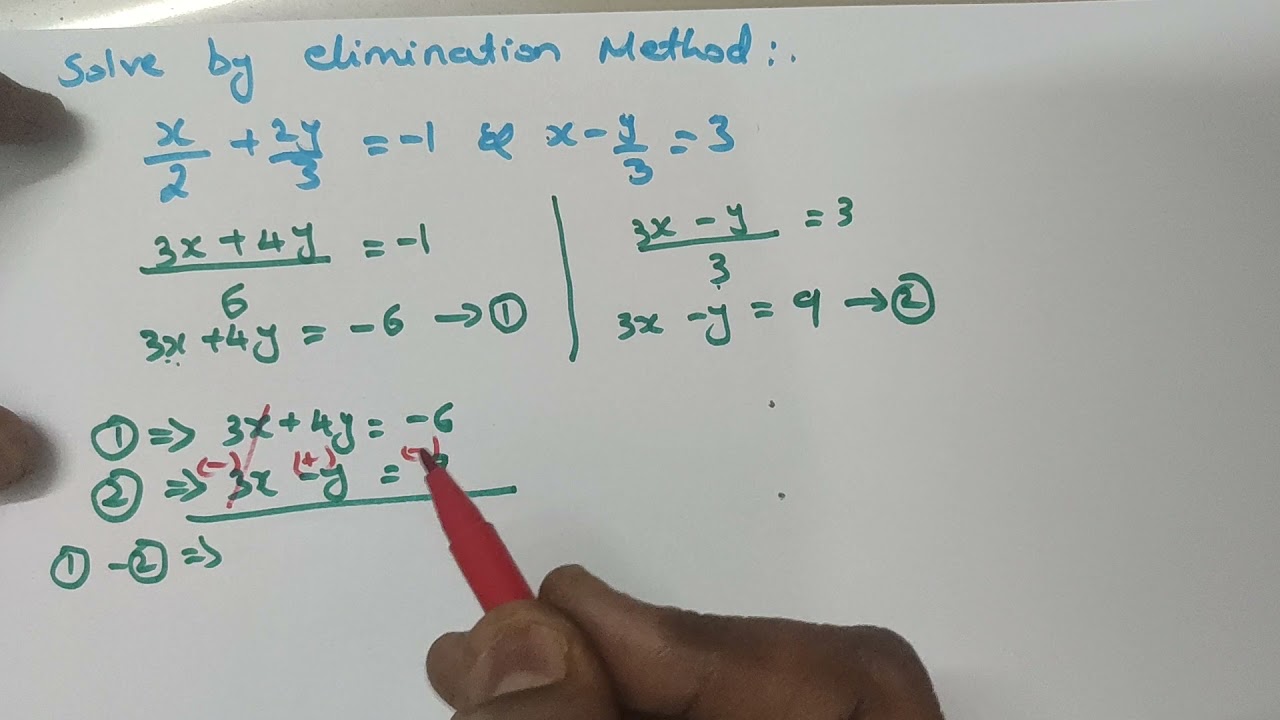 Solve by elimination Method:.
x/2 + 2y/3 = -1 & x - y/3 = 3
(3x + 4y)/6 = -1
3x + 4y = -6 → ①
(3x - y)/3 = 3
3x - y = 9 → ②
① ⇒ 3x + 4y = -6
(-) (+) (-)
② ⇒ 3x - y =
① - ② ⇒